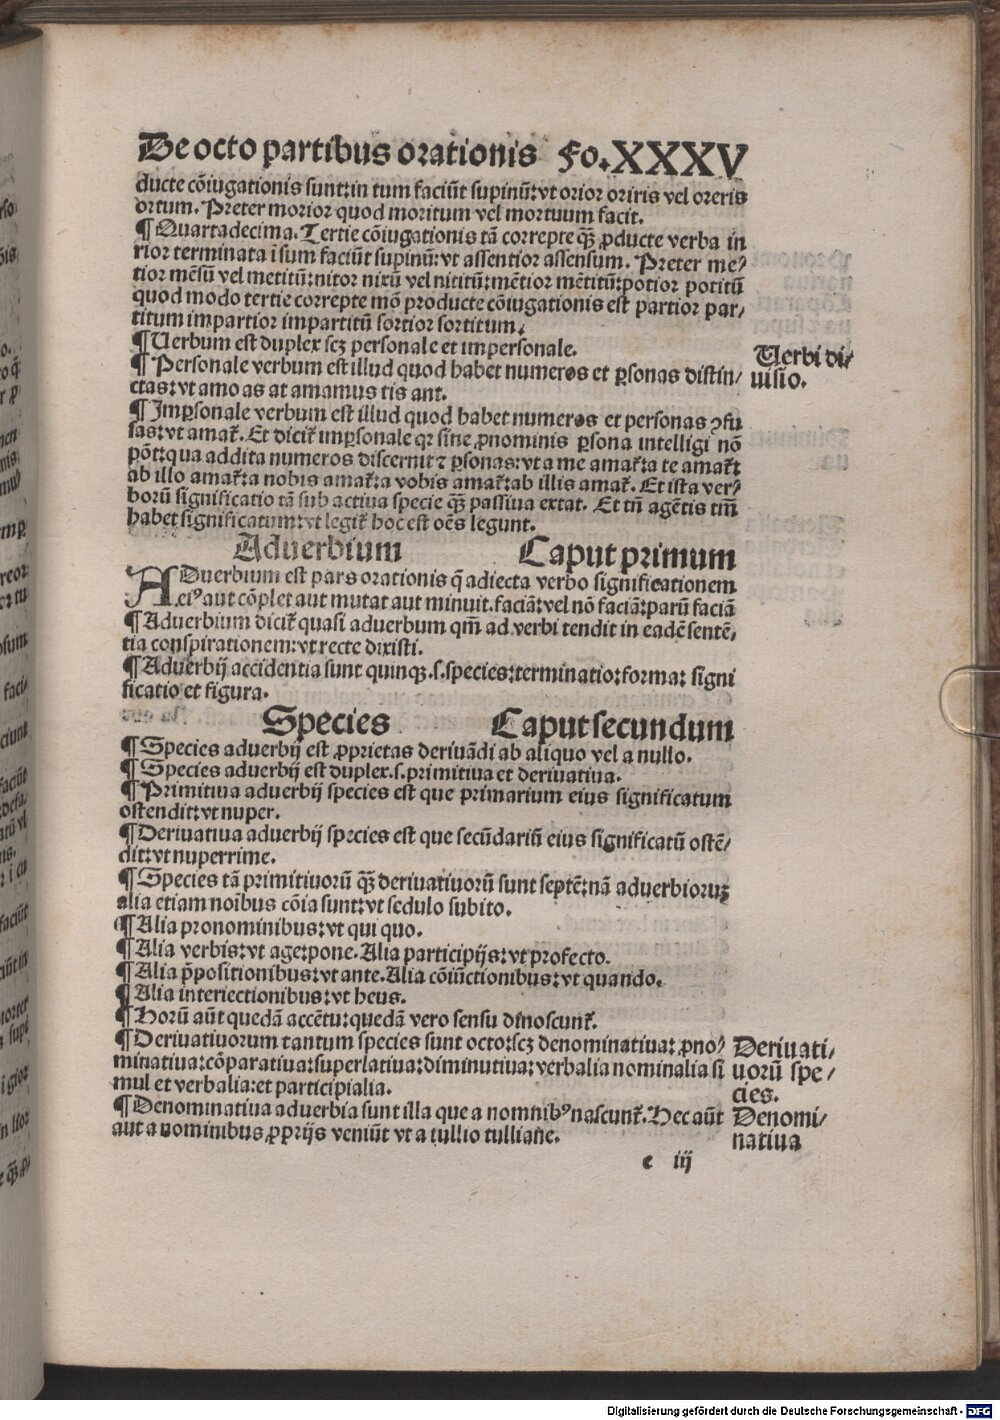 De octo partibus orationis Fo.XXXV
ducte cõiugationis sunt:in tum faciũt supinũ:vt orior oriris vel oreris
ortum. Preter morior quod moritum vel mortuum facit.
¶ Quartadecima. Tertie cõiugationis tã correpte qꝫ̃ ꝓducte verba in
rior terminata ĩ sum faciũt supinũ:vt assentior assensum. Preter me⸗
tior mẽsũ vel metitũ:nitor nixũ vel nititũ:mẽtior mẽtitũ:potior potitũ
quod modo tertie correpte mõ producte cõiugationis est partior par⸗
titum impartior impartitũ sortior sortitum.
¶ Uerbum est duplex scꝫ personale et impersonale.
Uerbi di⸗
uisio.
¶ Personale verbum est illud quod habet numeros et ꝑsonas distin⸗
ctas:vt amo as at amamus tis ant.
¶ Imꝑsonale verbum est illud quod habet numeros et personas ꝯfu
sas:vt amat᷑. Et dicit᷑ imꝑsonale qꝛ sine ꝓnominis ꝑsona intelligi nõ
põt:qua addita numeros discernit ⁊ ꝑsonas:vt a me amat᷑:a te amat᷑:
ab illo amat᷑:a nobis amat᷑:a vobis amat᷑:ab illis amat᷑. Et ista ver⸗
borũ significatio tã sub actiua specie qꝫ̃ passiua extat. Et tñ agẽtis tm̃
habet significatum:vt legit᷑ hoc est oẽs legunt.
Aduerbium Caput primum
ADuerbium est pars orationis q̃ adiecta verbo significationem
eiꝰ aut cõplet aut mutat aut minuit. faciã:vel nõ faciã:parũ faciã
¶ Aduerbium dicit᷑ quasi aduerbum qm̃ ad verbi tendit in eadẽ sentẽ⸗
tia conspirationem:vt recte dixisti.
¶ Aduerbij accidentia sunt quinqꝫ.s.species:terminatio:forma: signi
ficatio et figura.
Species Caput secundum
¶ Species aduerbij est ꝓprietas deriuãdi ab aliquo vel a nullo.
¶ Species aduerbij est duplex.s.primitiua et deriuatiua.
¶ Primitiua aduerbij species est que primarium eius significatum
ostendit:vt nuper.
¶ Deriuatiua aduerbij species est que secũdariũ eius significatũ ostẽ⸗
dit:vt nuperrime.
¶ Species tã primitiuorũ qꝫ̃ deriuatiuorũ sunt septẽ:nã aduerbioruꝫ
alia etiam noibus cõia sunt:vt sedulo subito.
¶ Alia pronominibus:vt qui quo.
¶ Alia verbis:vt age:pone. Alia participijs:vt profecto.
¶ Alia p̃positionibus:vt ante. Alia cõiũctionibus:vt quando.
¶ Alia interiectionibus:vt heus.
¶ Horũ aũt quedã accẽtu:quedã vero sensu dinoscunt᷑.
¶ Deriuatiuorum tantum species sunt octo:scꝫ denominatiua: ꝓno⸗
minatiua:cõparatiua:superlatiua:diminutiua:verbalia nominalia si
mul et verbalia:et participialia.
Deriuati⸗
uorũ spe⸗
cies.
¶ Denominatiua aduerbia sunt illa que a nomnibꝰ nascunt᷑. Hec aũt
aut a nominibus ꝓprijs veniũt vt a tullio tulliane.
Denomi⸗
natiua
e iij
Digitalisierung gefördert durch die Deutsche Forschungsgemeinschaft - DFG